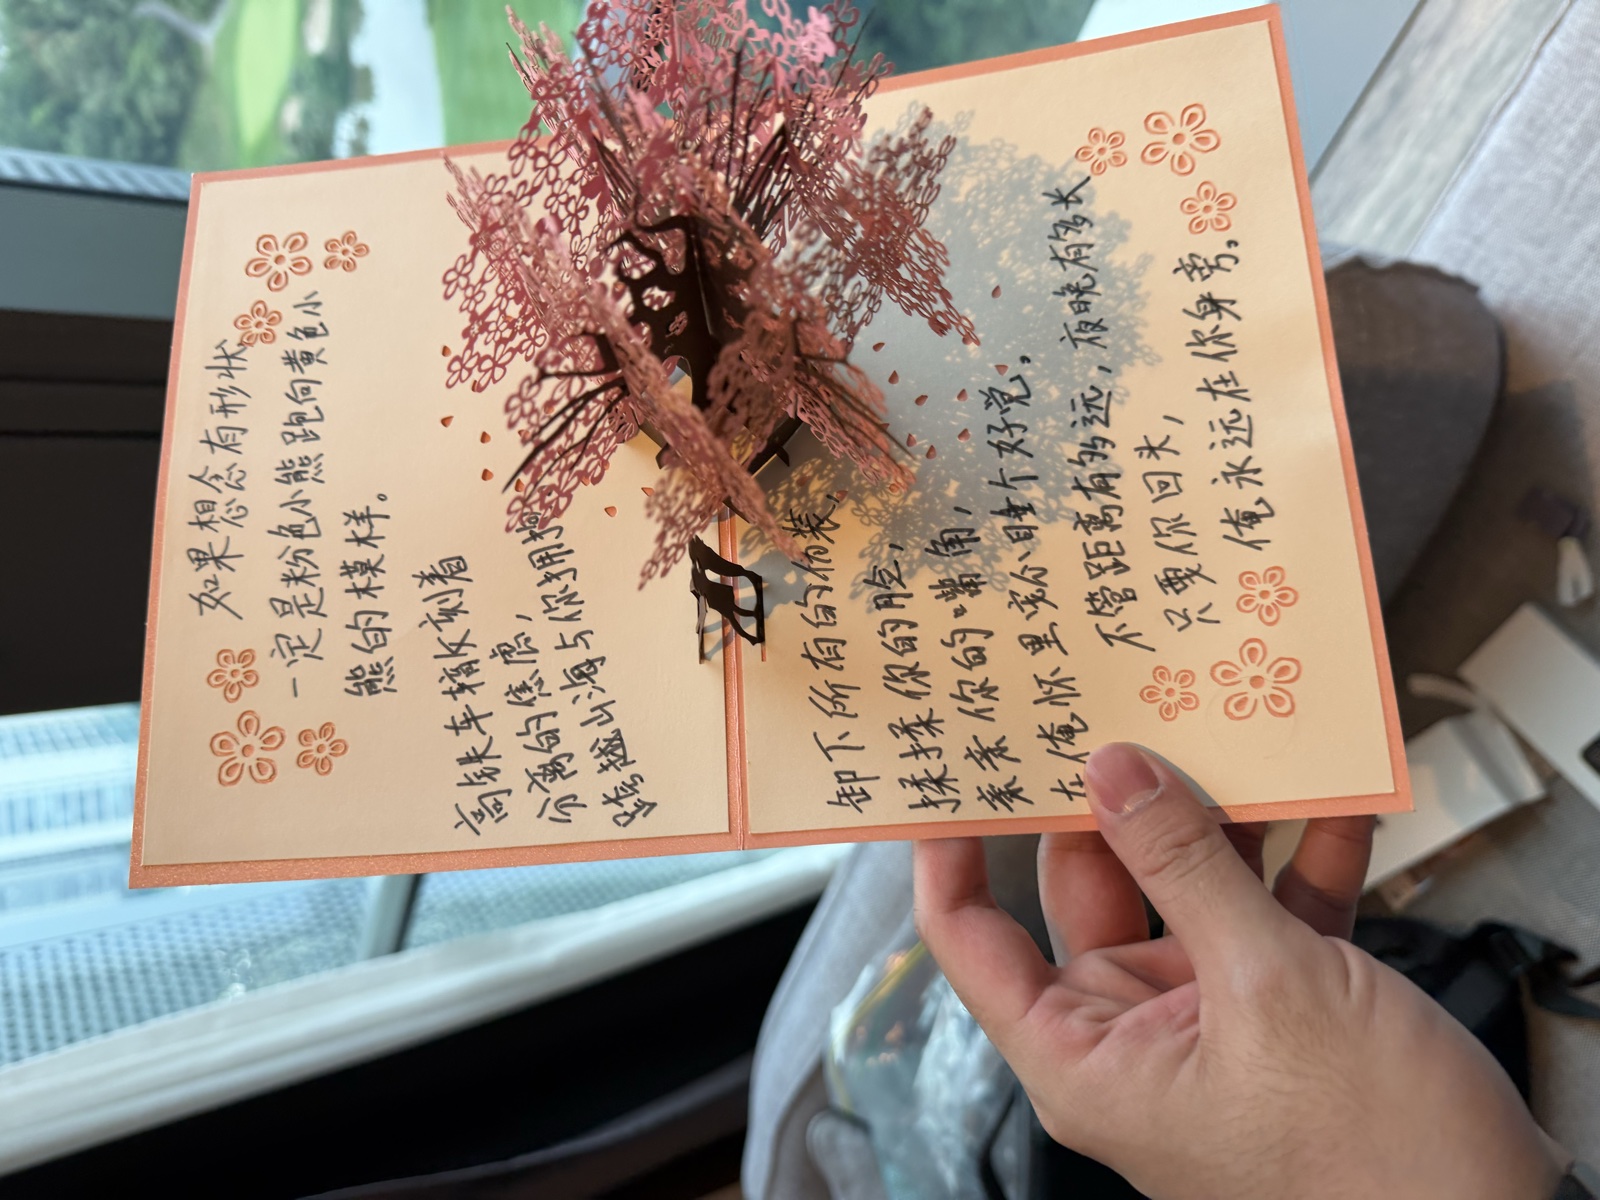 如果想念有形状,
一定是粉色小熊跑向黄色小
熊的模样。
高铁车辙女刻着
分离的焦虑,
跨越山海与你拥抱
卸下所有的伪装,
揉揉你的脸,
亲亲你的嘴角,
在俺怀里安心睡个好觉,
不管距离有多远,夜晚有多长
只要你回头,
俺永远在你身旁,